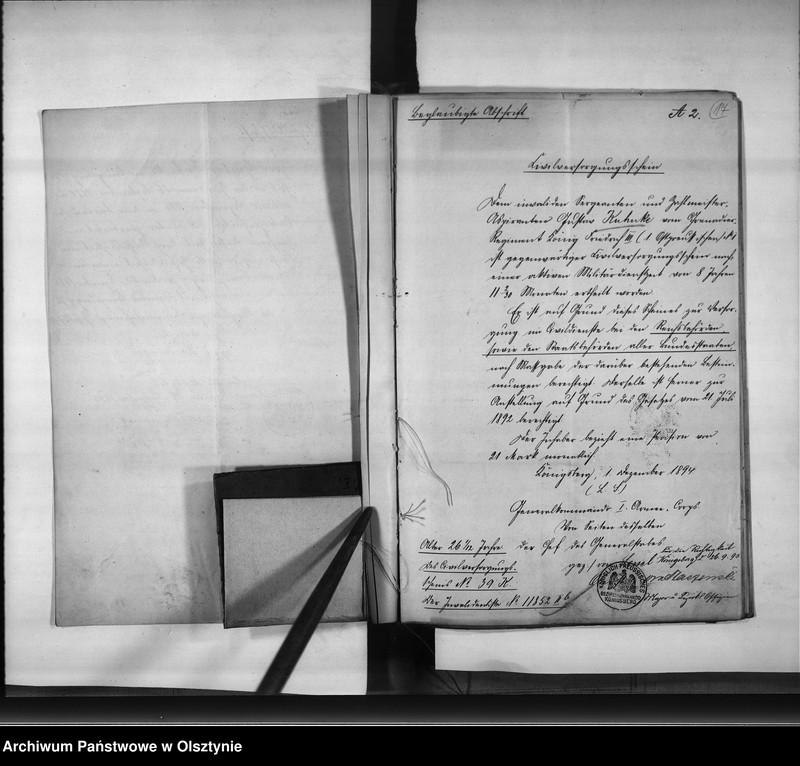 Beglaubigte Abschrift
A 2.
17
Civilversorgungsschein
Dem invaliden Sergeanten und Zahlmeister-
Aspiranten Gustav Kuhnke vom Grenadier-
Regiment König Friedrich III (1. Ostpreußischen) Nr 1
ist gegenwärtiger Civilversorgungsschein nach
einer aktiven Militärdienstzeit von 8 Jahren
11 Monaten ertheilt worden.
Er ist auf Grund dieses Scheines zur Versor-
gung im Civildienste bei den Reichsbehörden
sowie den Staatsbehörden aller Bundesstaaten
nach Maßgabe der darüber bestehenden Bestim-
mungen berechtigt. Derselbe ist ferner zur
Anstellung auf Grund des Gesetzes vom 21 Juli
1892 berechtigt.
Der Inhaber bezieht eine Pension von
21 Mark monatlich
Königsberg, 1 Dezember 1894
(L. S)
Generalkommando I. Armee-Corps
Von Seiten desselben
der Chef des Generalstabes
gez.
Alter 26 1/2 Jahre
des Civilversorgungs-
scheins No. 39 K.
der Invalidenliste No 11352
Für die Richtigkeit
Königsberg
Major u Bezirks Offizier
KÖNIGLICH PREUSSISCHES
BEZIRKSKOMMANDO
KÖNIGSBERG
Archiwum Państwowe w Olsztynie